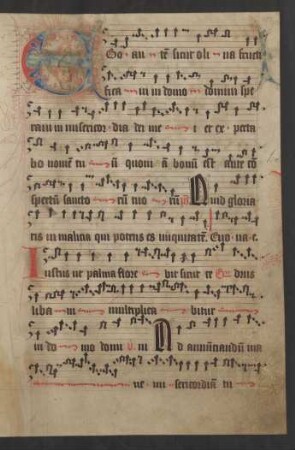 Ego au tē sicut oli na fructi
fica in in domo domini spe
raui in misericor dia dei me i et ex pecta
bo nomē tu ū quoni ā bonū est ante cō
spectū sancto rū tuo rū Quid gloria
ris in malicia qui potens es in iniquitatē Ego a e
Iustus ut palma flore bit sicut ce drus
liba ni multiplica bitur
in do mo domi ni Ad annūciandū ma
ne mi sericordiā tu